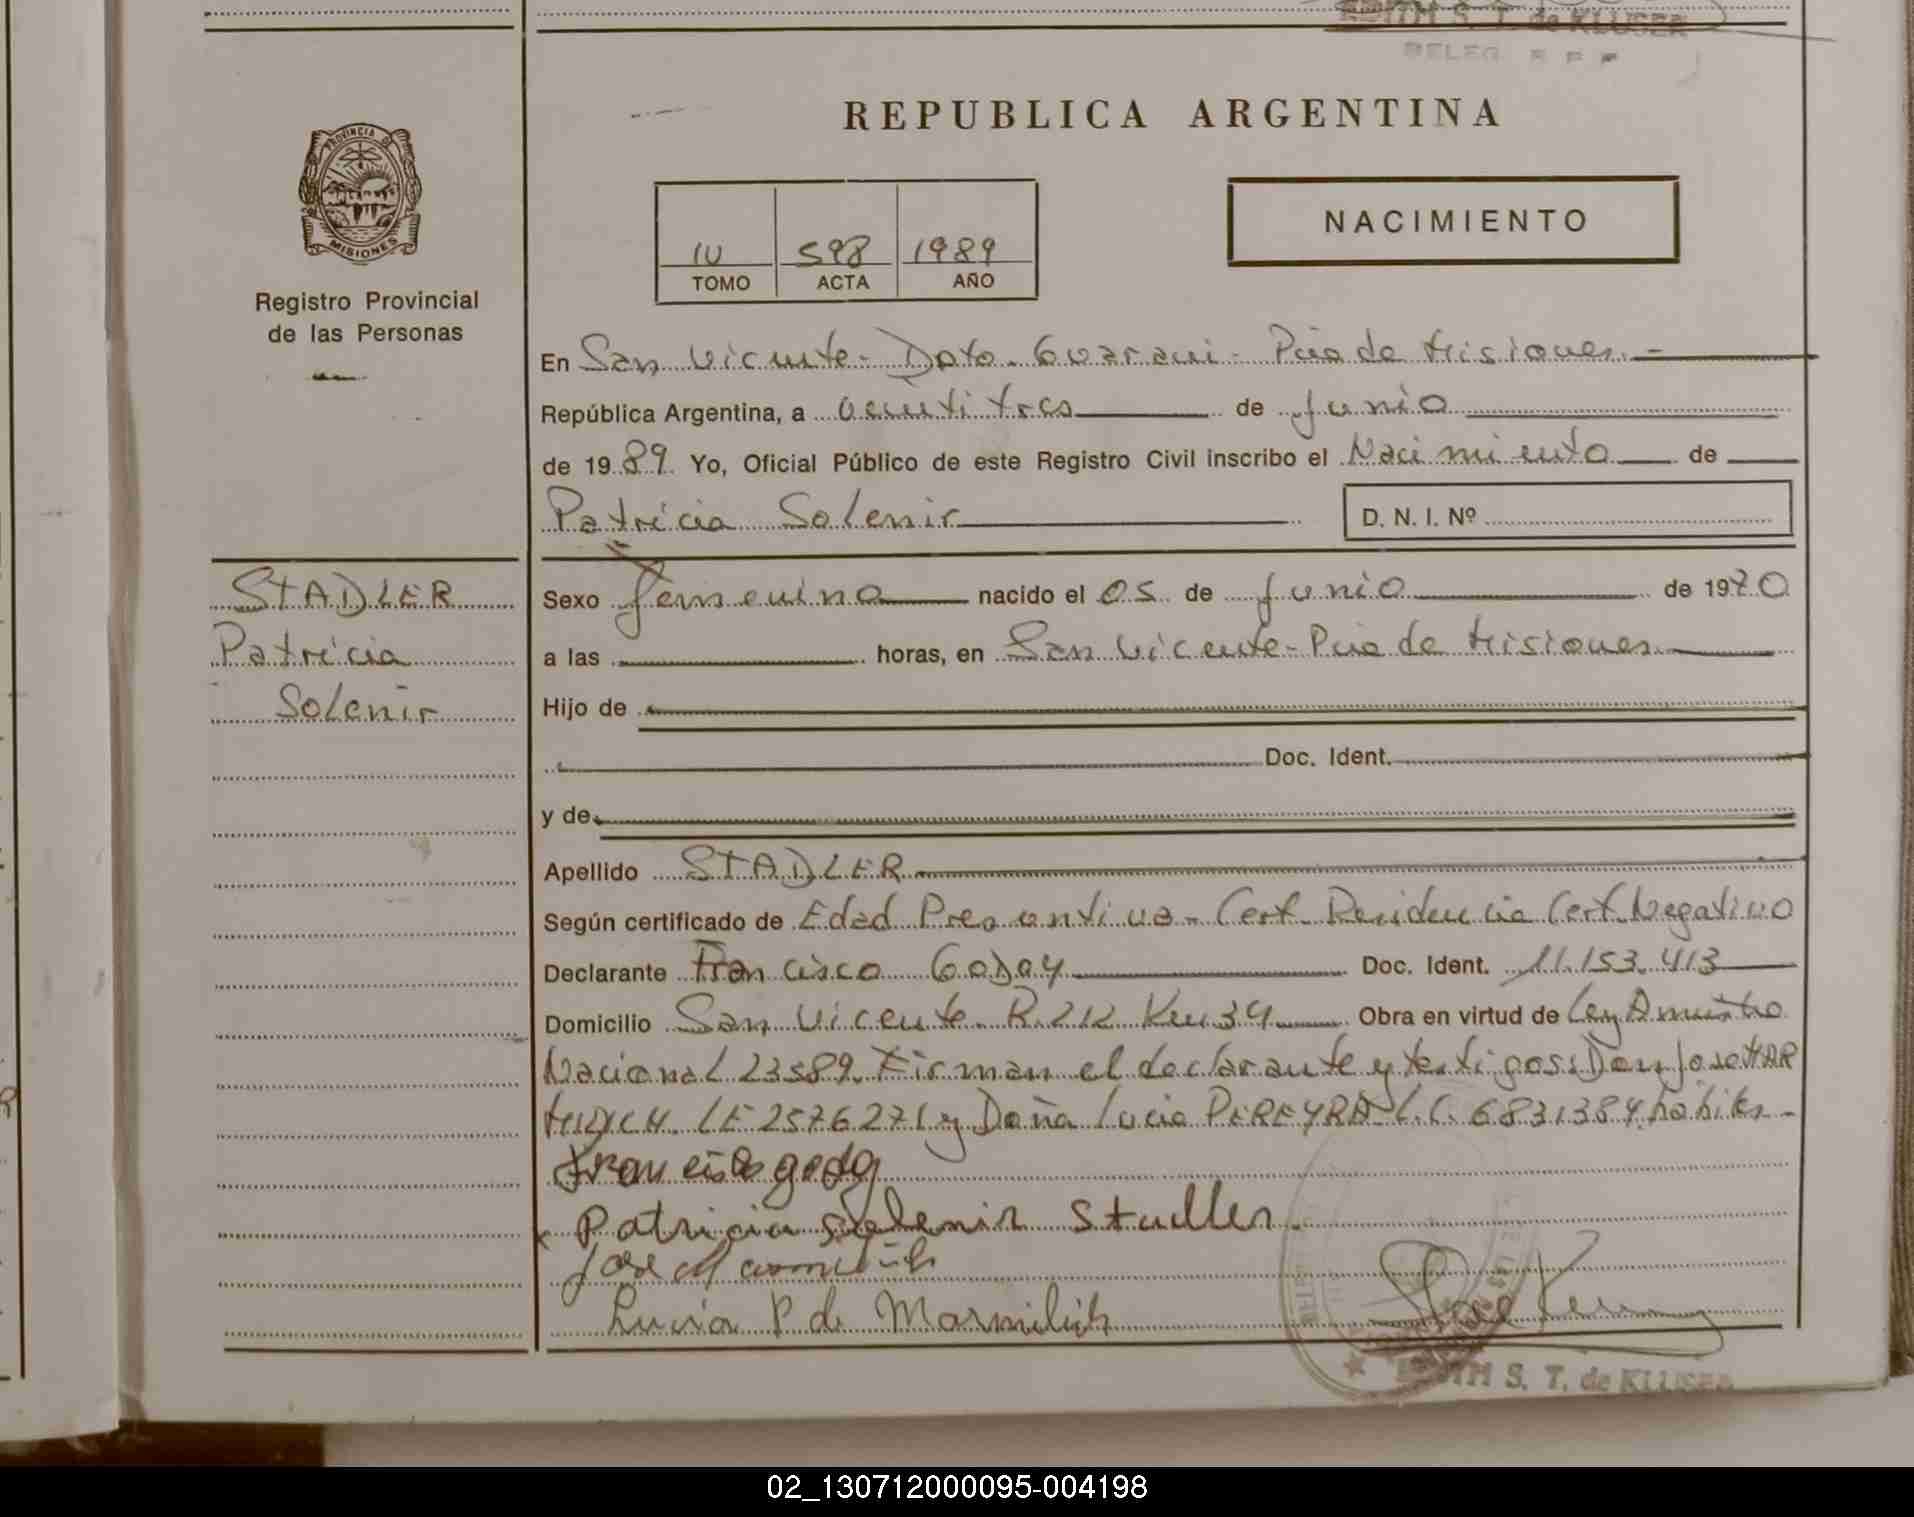 EDITH S. T. de KLUSER
DELEG. R P P
REPUBLICA ARGENTINA
PROVINCIA DE
MISIONES
Registro Provincial
de las Personas
IV 598 1989
TOMO ACTA AÑO
NACIMIENTO
En San Vicente - Dpto. Guarani - Pcia de Misiones. -
República Argentina, a veintitres de junio
de 1989 Yo, Oficial Público de este Registro Civil inscribo el Nacimiento de
Patricia Solenir D. N. I. Nº
STADLER
Patricia
Solenir
Sexo femenino nacido el 05 de junio de 1970
a las horas, en San Vicente - Pcia de Misiones
Hijo de
Doc. Ident.
y de
Apellido STADLER
Según certificado de Edad Presuntiva - Cert. Residencia Cert. Negativo
Declarante Francisco Goday Doc. Ident. 11.153.413
Domicilio San Vicente R. 212 Km 34 Obra en virtud de Ley Amnistia
Nacional 23589. Firman el declarante y testigos: Don Jose MAR
MILICH. LE 2576271 y Doña Lucia PEREYRA L.C. 6831384 habiles -
Francisco
Patricia Solenir Stadler.
Jose
Lucia P d Marmilich
EDITH S. T. de KLUSER
02_130712000095-004198